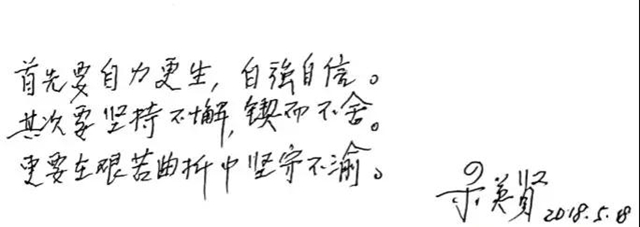 首先要自力更生，自強自信。
其次要坚持不懈，锲而不舍。
更要在艰苦曲折中坚守不渝。
英贤 2018.5.18